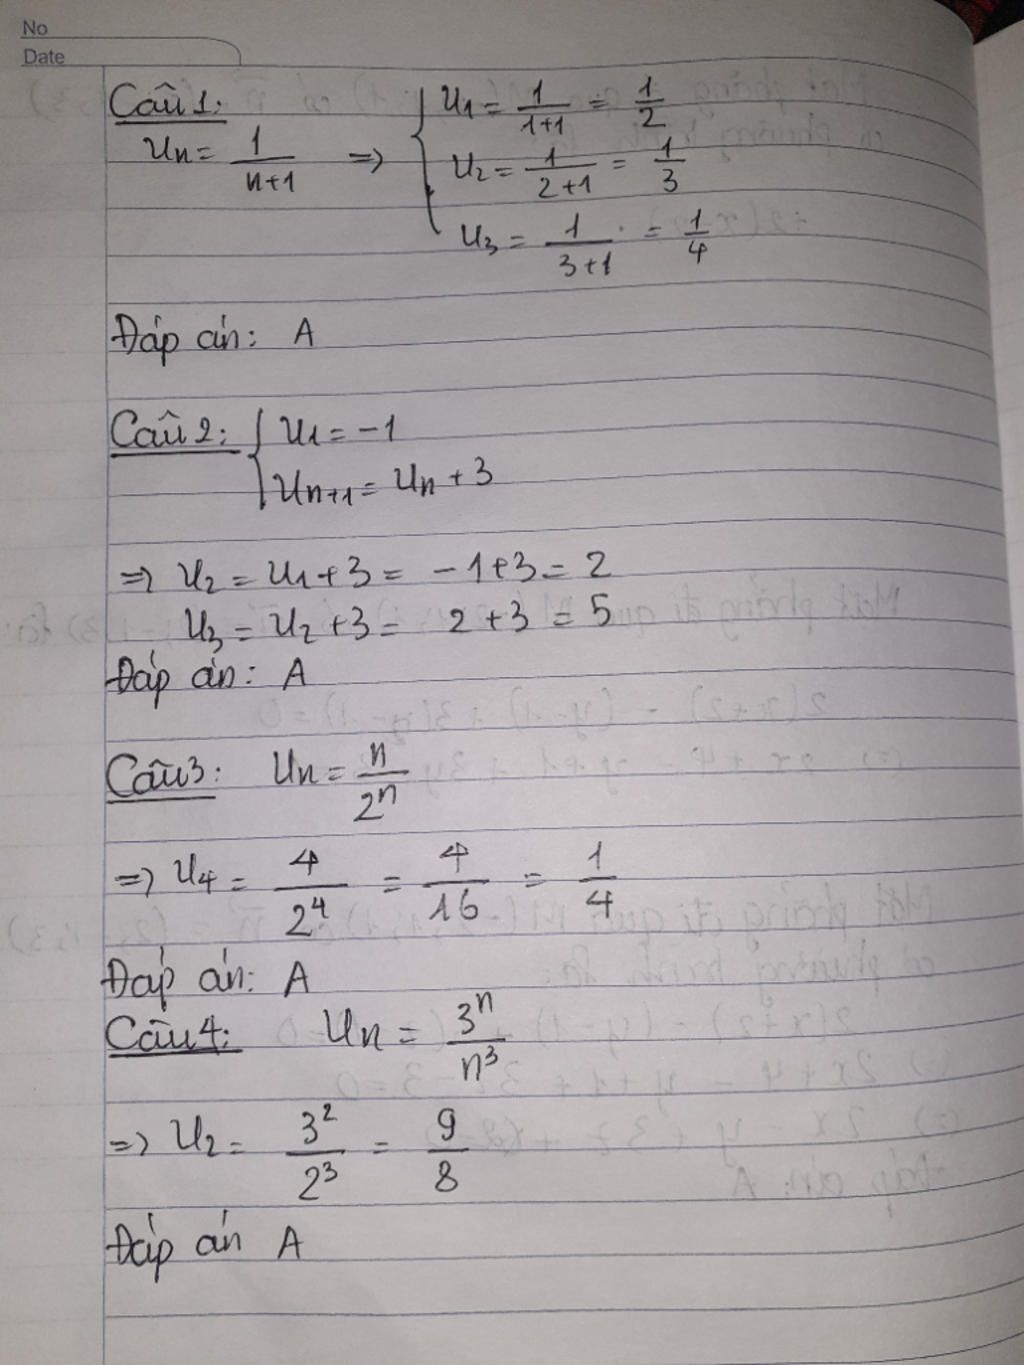 No
Date
Câu 1:
Un = 1/(n+1) => { U1 = 1/(1+1) = 1/2
U2 = 1/(2+1) = 1/3
U3 = 1/(3+1) = 1/4
Đáp án: A
Câu 2: { U1 = -1
Un+1 = Un + 3
=> U2 = U1 + 3 = -1+3 = 2
U3 = U2 + 3 = 2 + 3 = 5
Đáp án: A
Câu 3: Un = n/2^n
=> U4 = 4/2^4 = 4/16 = 1/4
Đáp án: A
Câu 4: Un = 3^n/n^3
=> U2 = 3^2/2^3 = 9/8
Đáp án A